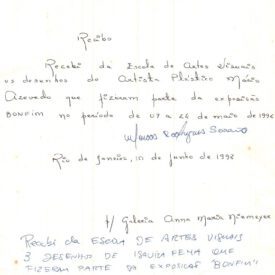 Recibo
Recebi da Escola de Artes Visuais
os desenhos do Artista Plástico Mário
Azevedo que fizeram parte da exposição
BONFIM no período de 07 a 24 de maio de 1996
Rodrigues
Rio de Janeiro, 10 de junho de 1998
p/ Galeria Anna Maria Niemeyer
Recebi da ESCOLA DE ARTES VISUAIS
3 DESENHO DE ISAURA PENA QUE
FIZERAM PARTE DA EXPOSICAO "BONFIM"